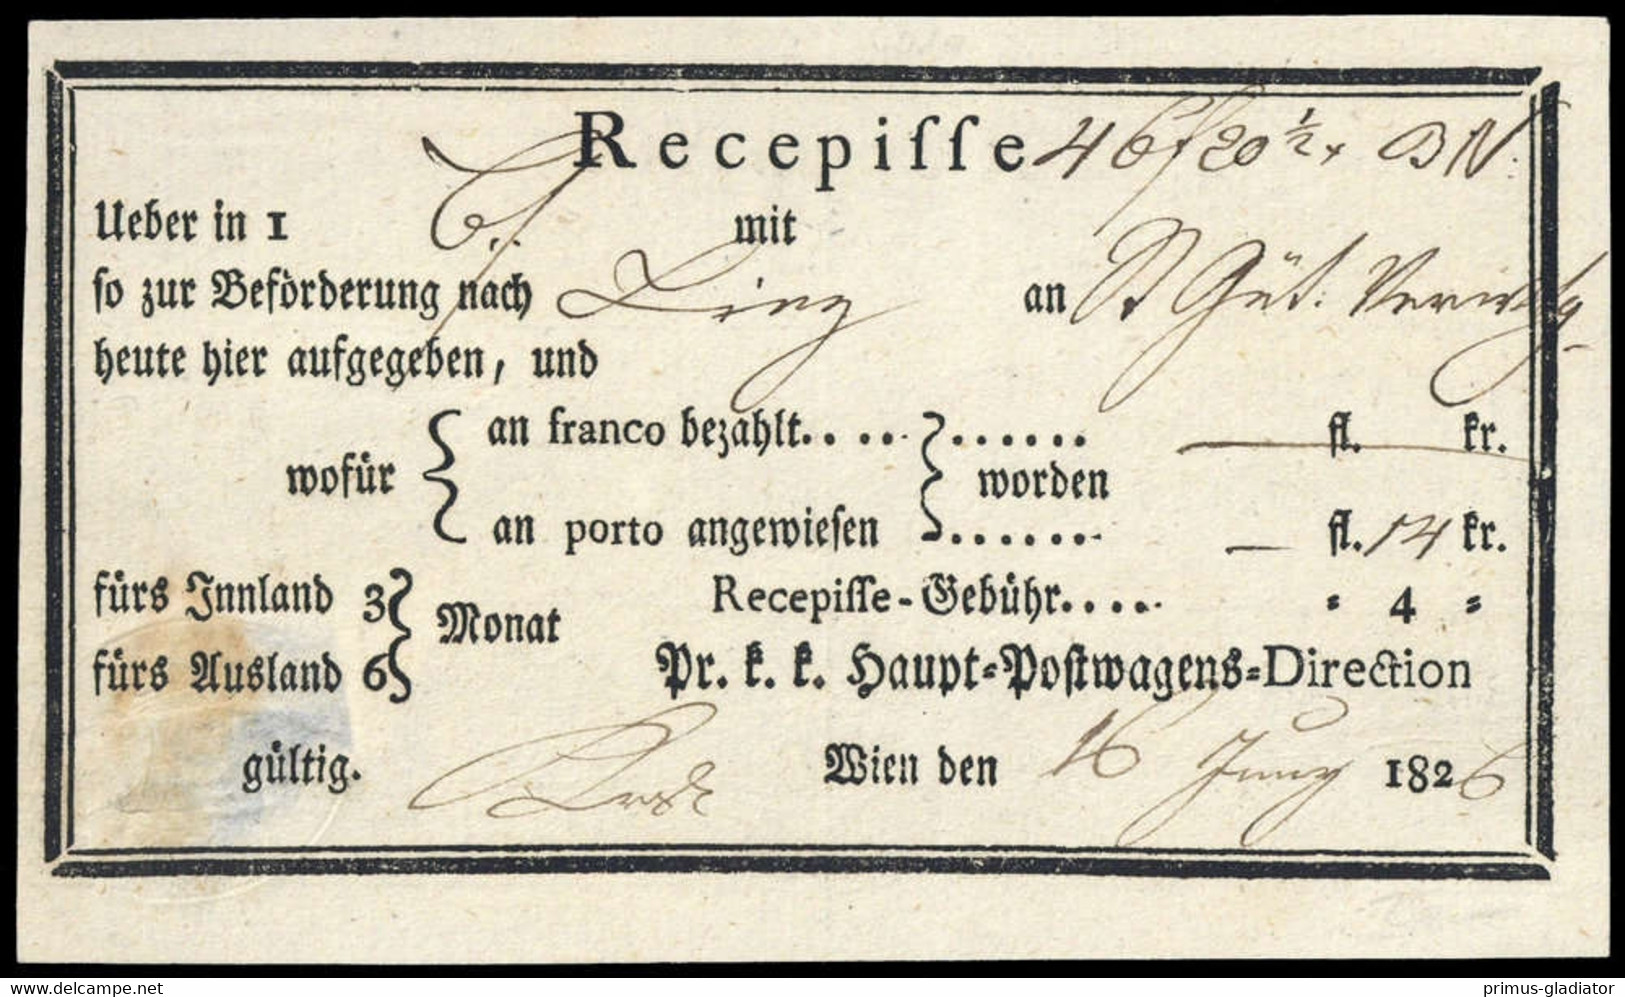 Recepiſſe 46f 20 1/2 x BN.
Ueber in 1 mit
ſo zur Beförderung nach Linz an Güt. Verwltg
heute hier aufgegeben, und
an franco bezahlt. . . . . . . . . . . — fl. kr.
wofür worden
an porto angewieſen . . . . . . . — fl. 14 kr.
fürs Innland 3 Recepiſſe-Gebühr. . . . . = 4 =
Monat
fürs Ausland 6 Pr. k. k. Haupt=Poſtwagens=Direction
gültig. Wien den 16 Juny 1826
delcampe.net
primus-gladiator